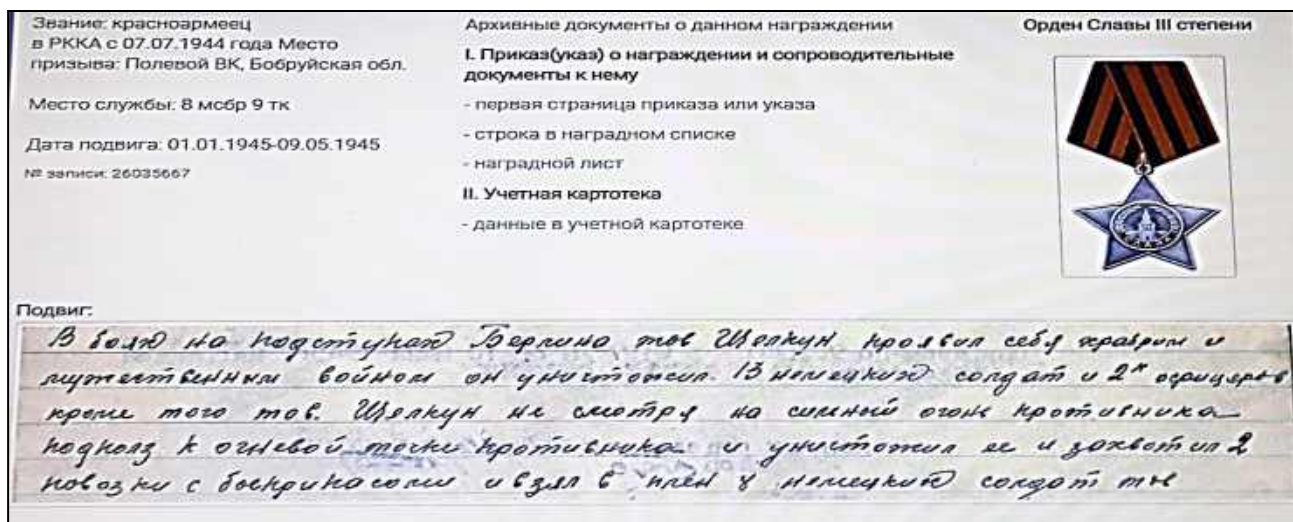 Звание: красноармеец
в РККА с 07.07.1944 года Место
призыва: Полевой ВК, Бобруйская обл.
Место службы: 8 мсбр 9 тк
Дата подвига: 01.01.1945-09.05.1945
№ записи: 26035667
Архивные документы о данном награждении
I. Приказ(указ) о награждении и сопроводительные
документы к нему
- первая страница приказа или указа
- строка в наградном списке
- наградной лист
II. Учетная картотека
- данные в учетной картотеке
Орден Славы III степени
Подвиг:
В боях на подступах Берлина тов Щелкун проявил себя храбрим и
мужественным войном он уничтожил 13 немецких солдат и 2х офицеров
кроме того тов. Щелкун не смотря на сильный огонь противника
подполз к огневой точки противника и уничтожил ее и захватил 2
повозки с боеприпасами и взял в плен 8 немецких солдат тов